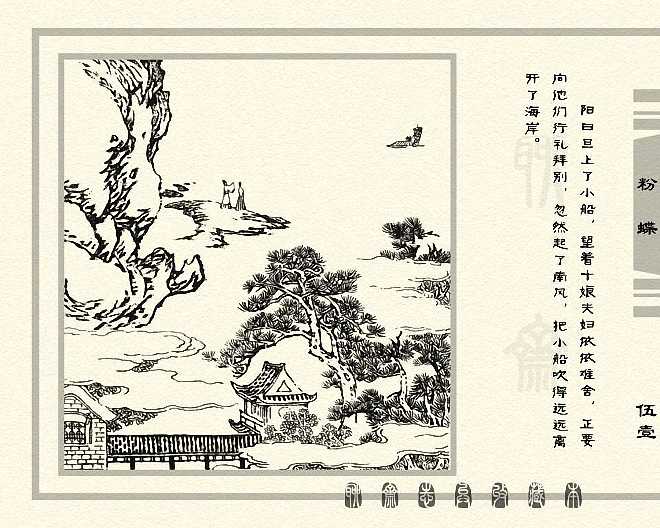 阳曰旦上了小船，望着十娘夫妇依依难舍，正要
向他们行礼拜别，忽然起了南风，把小船吹得远远离
开了海岸。
粉蝶
伍壹
聊斋志异收藏本